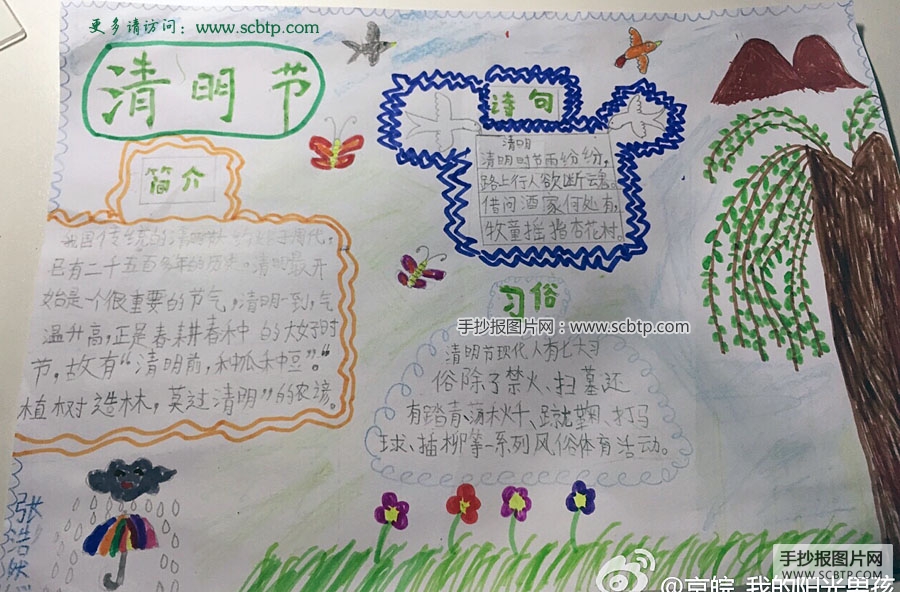 更多请访问：www.scbtp.com
清明节
简介
我国传统的清明节大约始于周代，
已有二千五百多年的历史，清明最开
始是一个很重要的节气，清明一到，气
温升高，正是春耕春种的大好时
节，故有“清明前，种瓜种豆”。“
植树造林，莫过清明”的农谚。
诗句
清明
清明时节雨纷纷，
路上行人欲断魂。
借问酒家何处有，
牧童摇指杏花村。
习俗
手抄报图片网：www.scbtp.com
清明节现代人有七大习
俗除了禁火、扫墓还
有踏青、荡秋千、蹴鞠、打马
球、插柳等一系列风俗体育活动。
张浩
手抄报图片网
WWW.SCBTP.COM
@京皖_我的阳光男孩